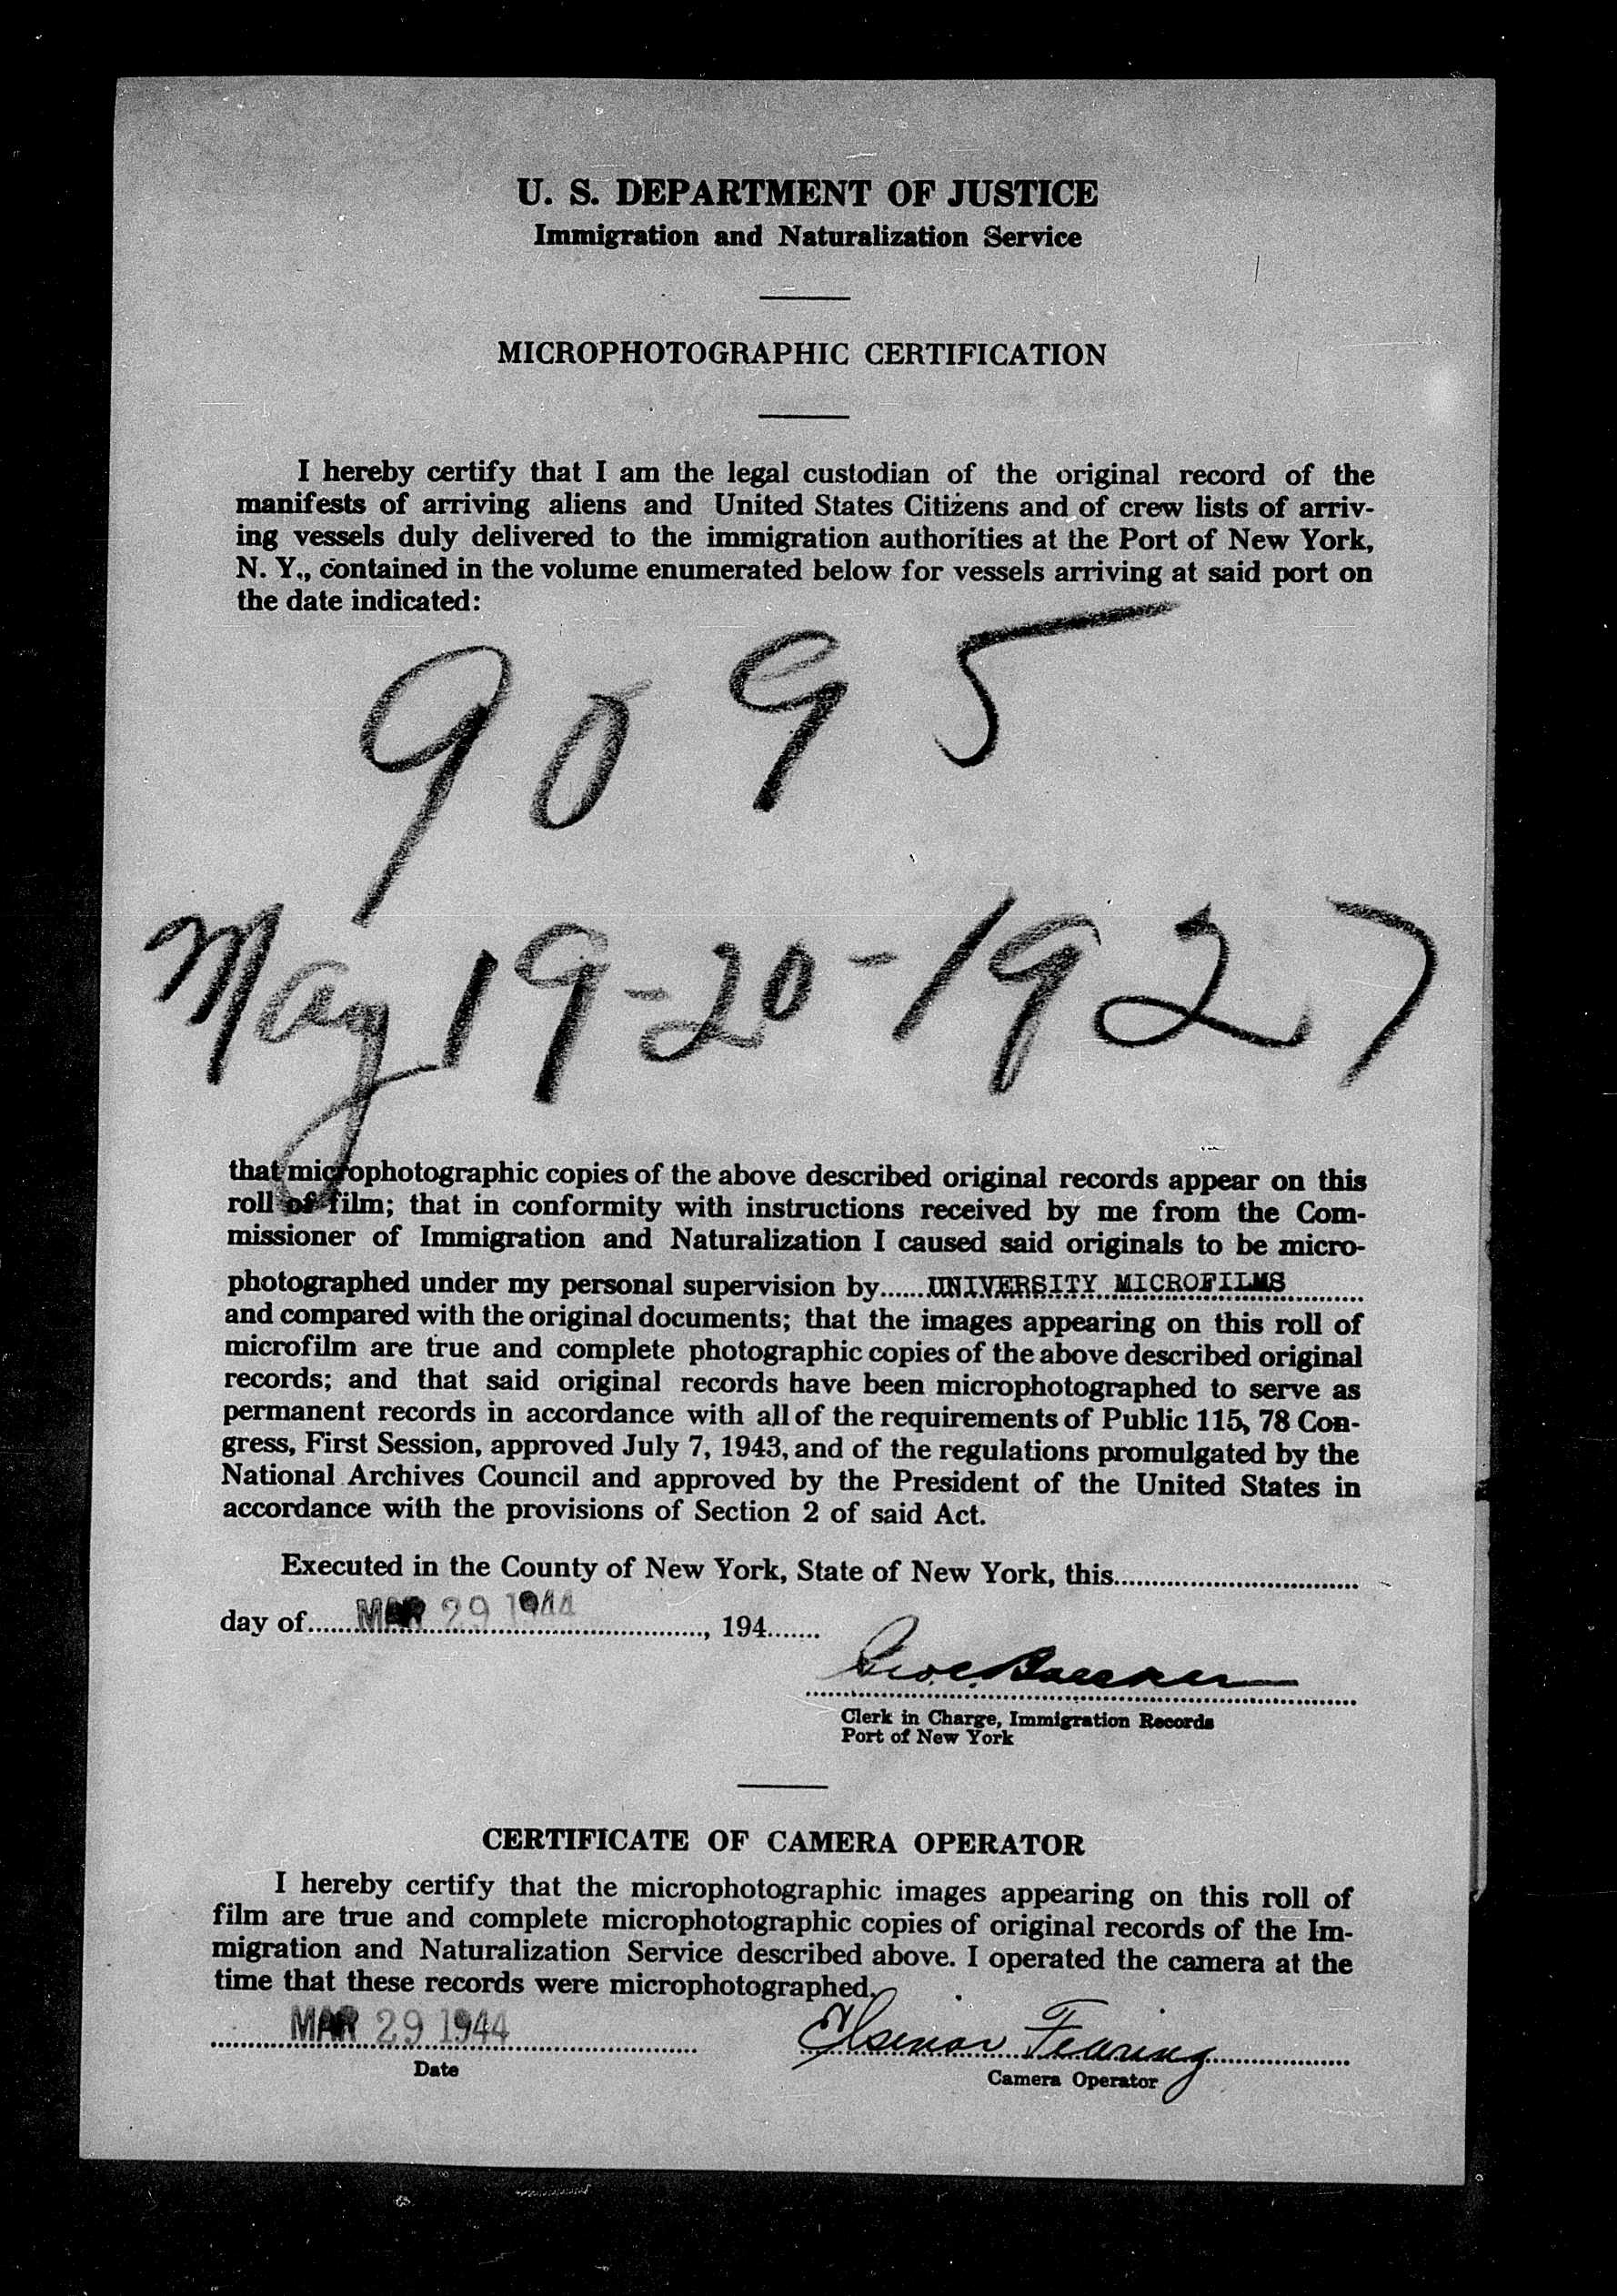 U. S. DEPARTMENT OF JUSTICE
Immigration and Naturalization Service
MICROPHOTOGRAPHIC CERTIFICATION
I hereby certify that I am the legal custodian of the original record of the
manifests of arriving aliens and United States Citizens and of crew lists of arriv-
ing vessels duly delivered to the immigration authorities at the Port of New York,
N. Y., contained in the volume enumerated below for vessels arriving at said port on
the date indicated:
9095
May 19-20-1927
that microphotographic copies of the above described original records appear on this
roll of film; that in conformity with instructions received by me from the Com-
missioner of Immigration and Naturalization I caused said originals to be micro-
photographed under my personal supervision by......UNIVERSITY MICROFILMS
and compared with the original documents; that the images appearing on this roll of
microfilm are true and complete photographic copies of the above described original
records; and that said original records have been microphotographed to serve as
permanent records in accordance with all of the requirements of Public 115, 78 Con-
gress, First Session, approved July 7, 1943, and of the regulations promulgated by the
National Archives Council and approved by the President of the United States in
accordance with the provisions of Section 2 of said Act.
Executed in the County of New York, State of New York, this
day of MAR 29 1944, 194
Clerk in Charge, Immigration Records
Port of New York
CERTIFICATE OF CAMERA OPERATOR
I hereby certify that the microphotographic images appearing on this roll of
film are true and complete microphotographic copies of original records of the Im-
migration and Naturalization Service described above. I operated the camera at the
time that these records were microphotographed.
MAR 29 1944 Elsenor Fearing
Date
Camera Operator